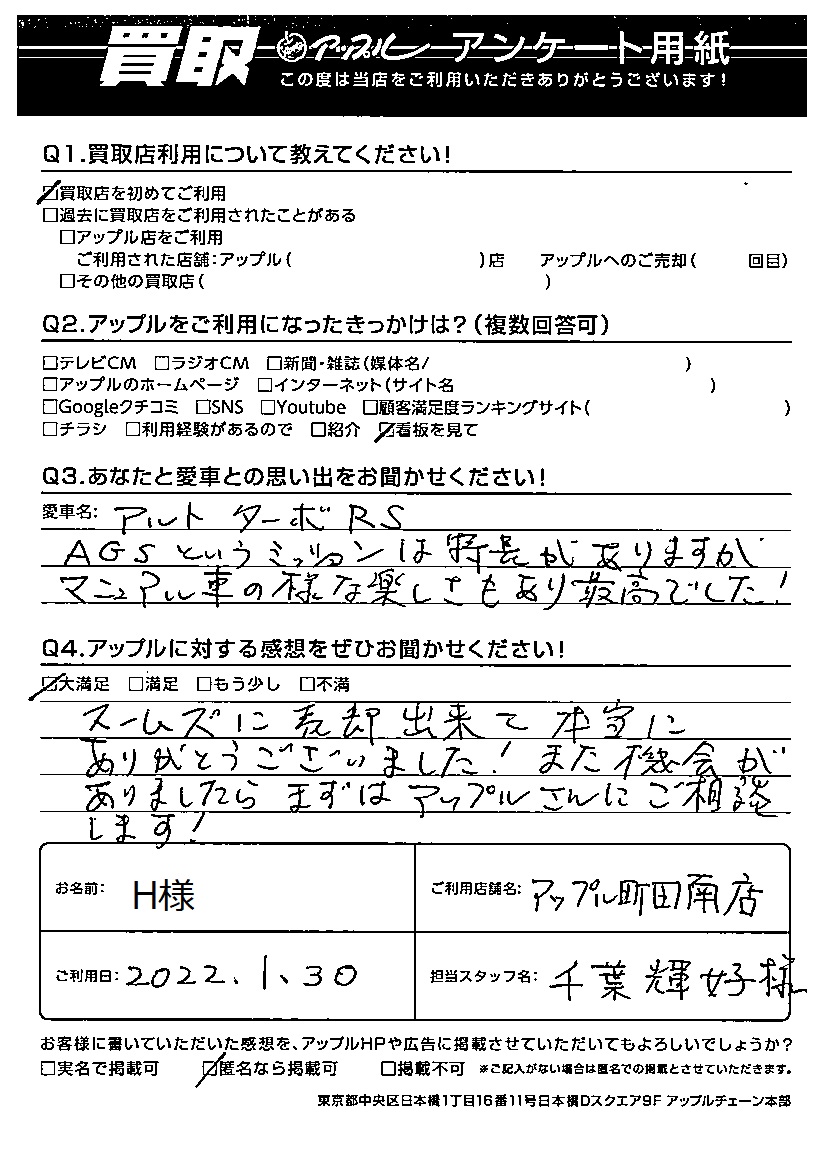 買取 アップル アンケート用紙
この度は当店をご利用いただきありがとうございます!
Q1.買取店利用について教えてください!
☑買取店を初めてご利用
□過去に買取店をご利用されたことがある
□アップル店をご利用
ご利用された店舗:アップル( )店 アップルへのご売却( 回目)
□その他の買取店( )
Q2.アップルをご利用になったきっかけは?(複数回答可)
□テレビCM □ラジオCM □新聞・雑誌(媒体名/ )
□アップルのホームページ □インターネット(サイト名 )
□Googleクチコミ □SNS □Youtube □顧客満足度ランキングサイト( )
□チラシ □利用経験があるので □紹介 ☑看板を見て
Q3.あなたと愛車との思い出をお聞かせください!
愛車名: アルト ターボRS
AGSというミッションは特長がありますが
マニュアル車の様な楽しさもあり最高でした!
Q4.アップルに対する感想をぜひお聞かせください!
☑大満足 □満足 □もう少し □不満
スームズに売却出来て本当に
ありがとうございました!また機会が
ありましたらまずはアップルさんにご相談
します!
お名前: H様 ご利用店舗名: アップル町田南店
ご利用日: 2022.1.30 担当スタッフ名: 千葉輝好様
お客様に書いていただいた感想を、アップルHPや広告に掲載させていただいてもよろしいでしょうか?
□実名で掲載可 ☑匿名なら掲載可 □掲載不可 ※ご記入がない場合は匿名での掲載とさせていただきます。
東京都中央区日本橋1丁目16番11号日本橋Dスクエア9F アップルチェーン本部